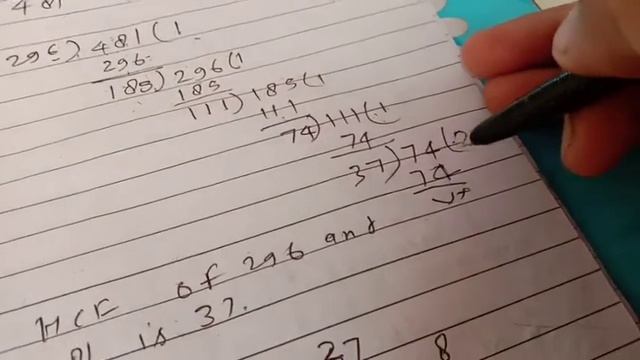 481
296) 481 (1
296
185) 296 (1
185
111) 185 (1
111
74) 111 (1
74
37) 74 (2
74
HCF of 296 and
is 37.
27 8